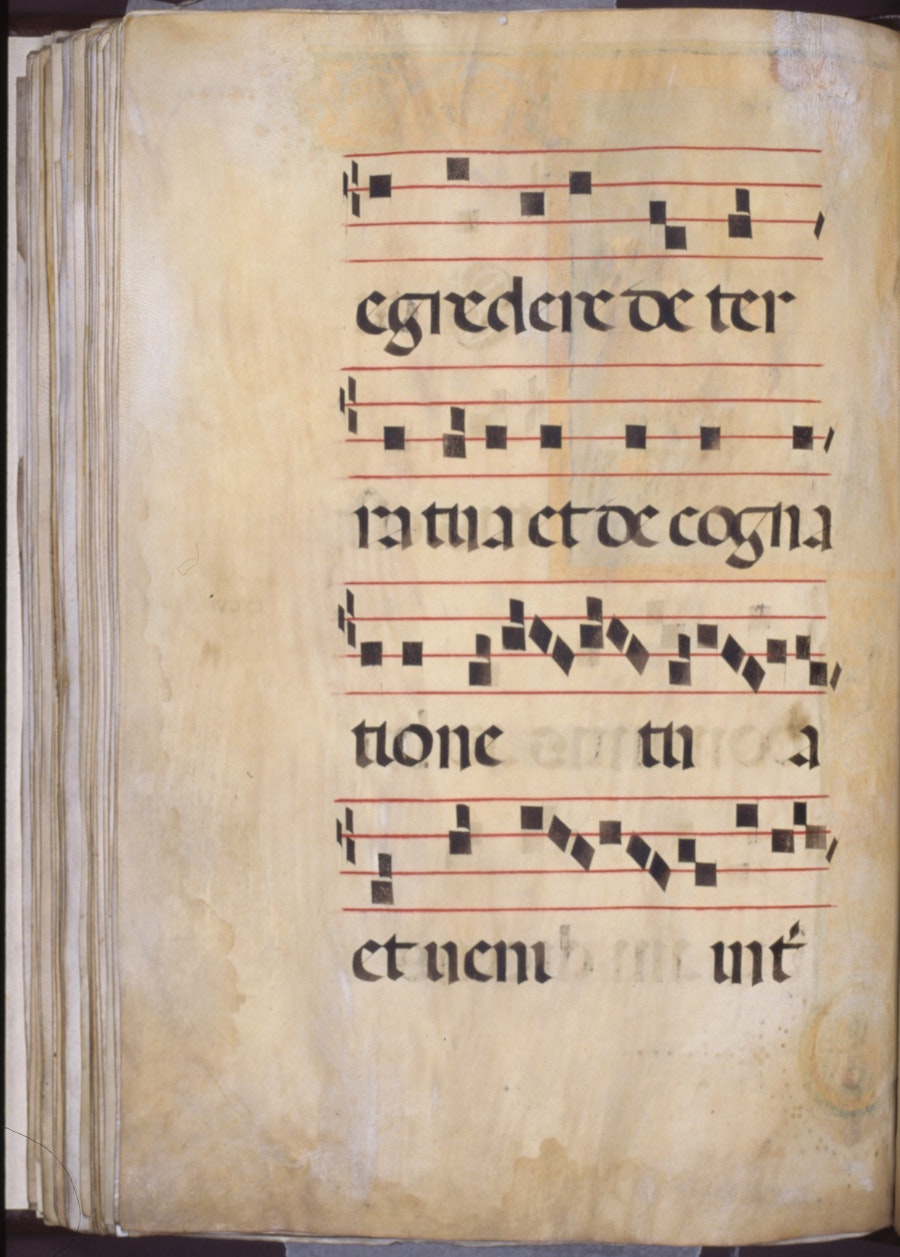 egredere de ter
ra tua et de cogna
tione tu a
et ueni int᷑